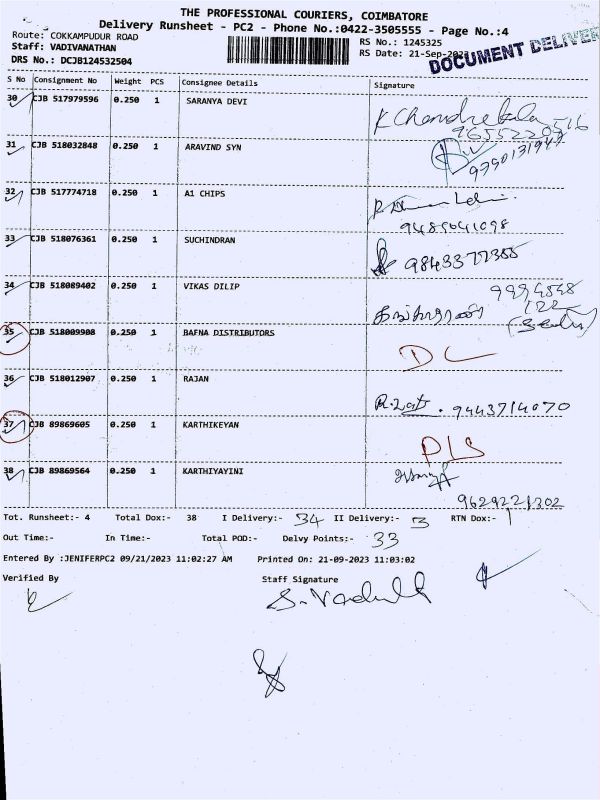 THE PROFESSIONAL COURIERS, COIMBATORE
Delivery Runsheet - PC2 - Phone No.:0422-3505555 - Page No.:4
Route: COKKAMPUDUR ROAD
RS No.: 1245325
Staff: VADIVANATHAN
RS Date: 21-Sep-2023
DOCUMENT DELIVER
DRS No.: DCJB124532504
S No Consignment No Weight PCS Consignee Details Signature
30 CJB 517979596 0.250 1 SARANYA DEVI
K Chandrekala
9655220516
31 CJB 518032848 0.250 1 ARAVIND SYN
9790131947
32 CJB 517774718 0.250 1 A1 CHIPS
33 CJB 518076361 0.250 1 SUCHINDRAN
9843377355
34 CJB 518089402 0.250 1 VIKAS DILIP
35 CJB 518009908 0.250 1 BAFNA DISTRIBUTORS
DL
36 CJB 518012907 0.250 1 RAJAN
9443714070
37 CJB 89869605 0.250 1 KARTHIKEYAN
PLS
38 CJB 89869564 0.250 1 KARTHIYAYINI
9629221302
Tot. Runsheet:- 4 Total Dox:- 38 I Delivery:- 34 II Delivery:- 3 RTN Dox:- 1
Out Time:- In Time:- Total POD:- Delvy Points:- 33
Entered By :JENIFERPC2 09/21/2023 11:02:27 AM Printed On: 21-09-2023 11:03:02
Verified By Staff Signature